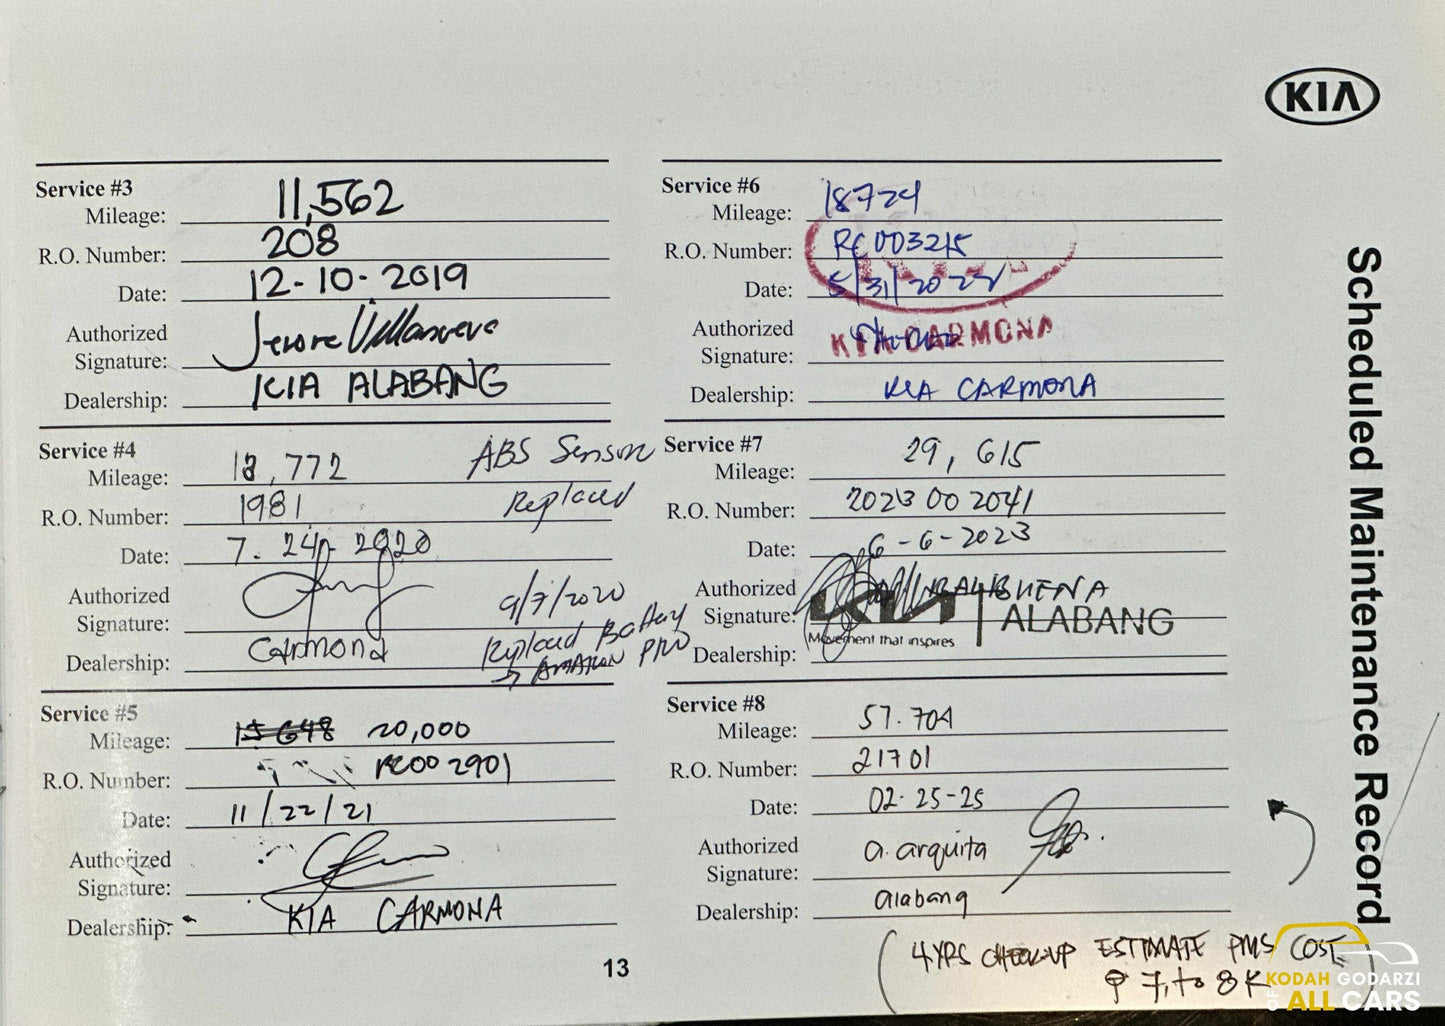 KIA
Scheduled Maintenance Record
Service #3
Mileage: 11,562
R.O. Number: 208
Date: 12-10-2019
Authorized
Signature: Jerome Villanueva
Dealership: KIA ALABANG
Service #4
Mileage: 13,772 ABS Sensor
R.O. Number: 1981 Replaced
Date: 7.24-2020
Authorized
Signature: 9/7/2020
Dealership: CARMONA Replaced Battery
→ AMARON PRO
Service #5
Mileage: 15648 20,000
R.O. Number: RC002901
Date: 11/22/21
Authorized
Signature:
Dealership: KIA CARMONA
Service #6
Mileage: 18724
R.O. Number: RC003215
Date: 5/31/2022
Authorized
Signature: KIA CARMONA
Dealership: KIA CARMONA
Service #7
Mileage: 29,615
R.O. Number: 2023002041
Date: 6-6-2023
Authorized
Signature: KIA ALABANG
Movement that inspires
Dealership:
Service #8
Mileage: 57.704
R.O. Number: 21701
Date: 02-25-25
Authorized
Signature: a. arquita
Dealership: alabang
(4YRS CHECK-UP ESTIMATE PMS COST
₱ 7, to 8K)
13
KODAH GODARZI
OF ALL CARS